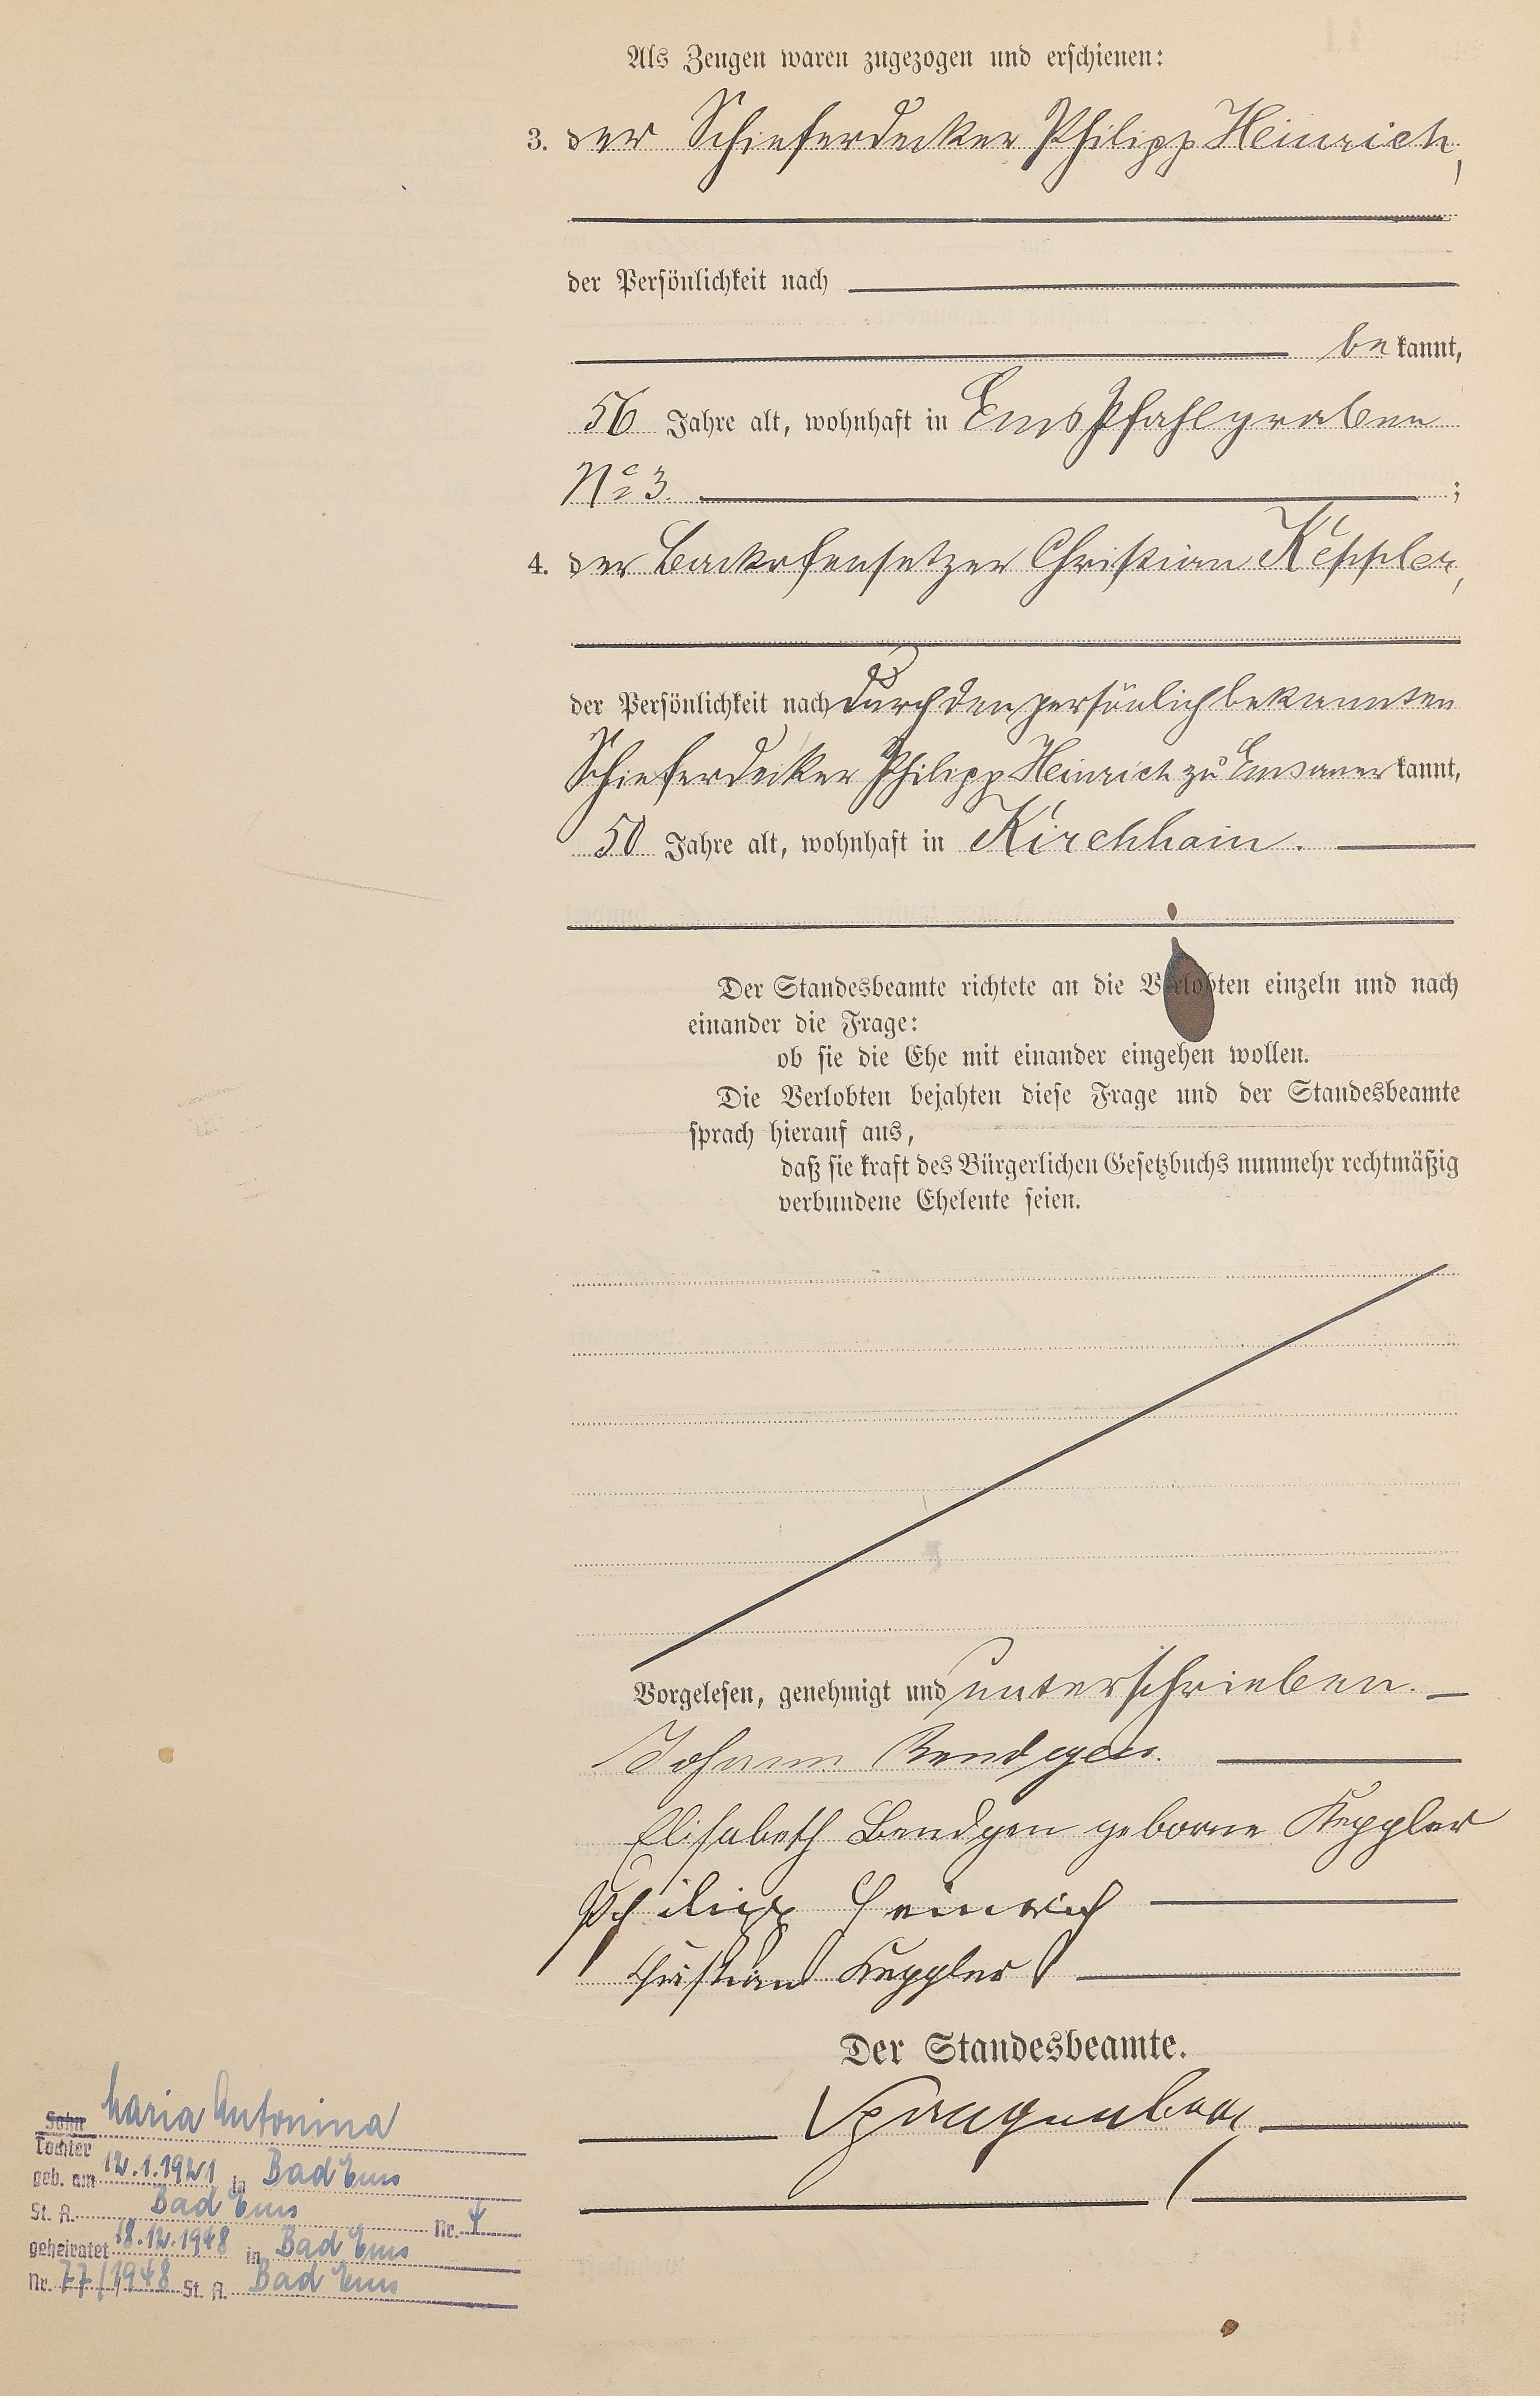 Als Zeugen waren zugezogen und erschienen:
3. der Schieferdecker Philipp Heinrich,
der Persönlichkeit nach
bekannt,
56 Jahre alt, wohnhaft in Ems Pfahlgraben
No 3 ;
4. der Backofensetzer Christian Keppler,
der Persönlichkeit nach durch den persönlich bekannten
Schieferdecker Philipp Heinrich zu Ems anerkannt,
50 Jahre alt, wohnhaft in Kirchhain.
Der Standesbeamte richtete an die Verlobten einzeln und nach
einander die Frage:
ob sie die Ehe mit einander eingehen wollen.
Die Verlobten bejahten diese Frage und der Standesbeamte
sprach hierauf aus,
daß sie kraft des Bürgerlichen Gesetzbuchs nunmehr rechtmäßig
verbundene Eheleute seien.
Vorgelesen, genehmigt und unterschrieben.
Johann Bendgen.
Elisabeth Bendgen geborne Keppler
Philipp Heinrich
Christian Keppler
Der Standesbeamte.
Sohn
Tochter Maria Antonina
geb. am 12.1.1921 in Bad Ems
St. A. Bad Ems Nr.
geheiratet 18.12.1948 in Bad Ems
Nr. 77/1948 St. A. Bad Ems